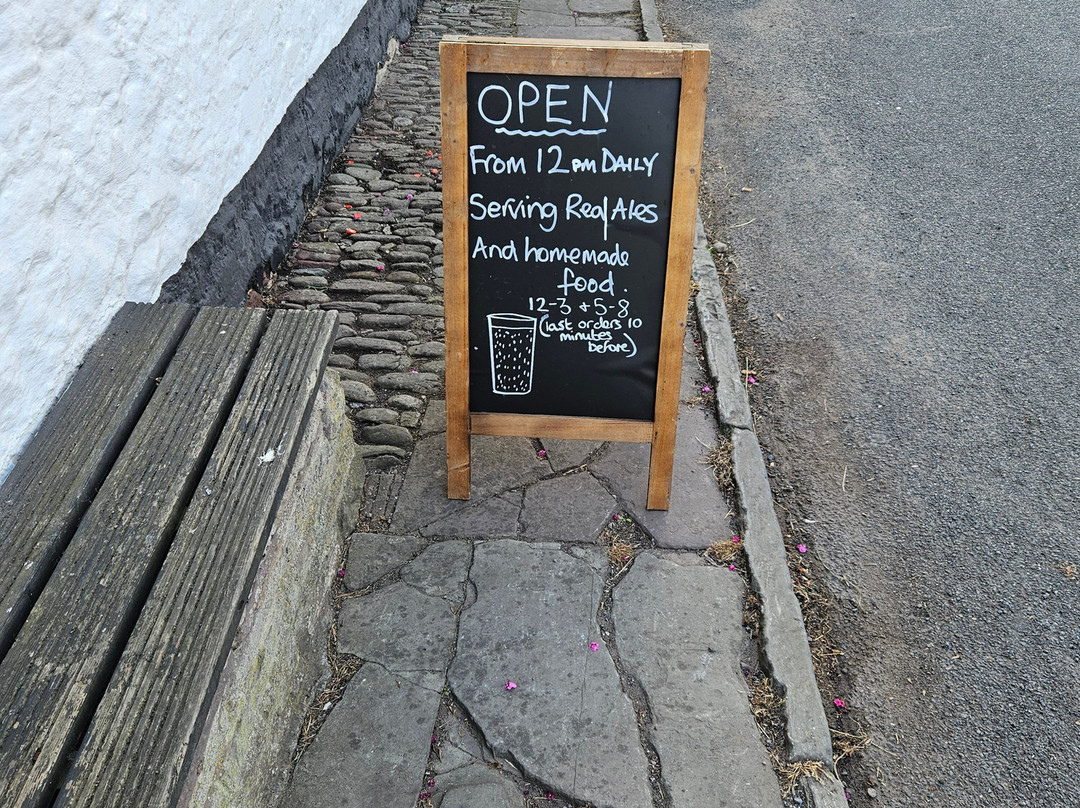 OPEN
From 12pm DAILY
Serving Real Ales
And homemade
food.
12-3 + 5-8
(last orders 10
minutes
before)